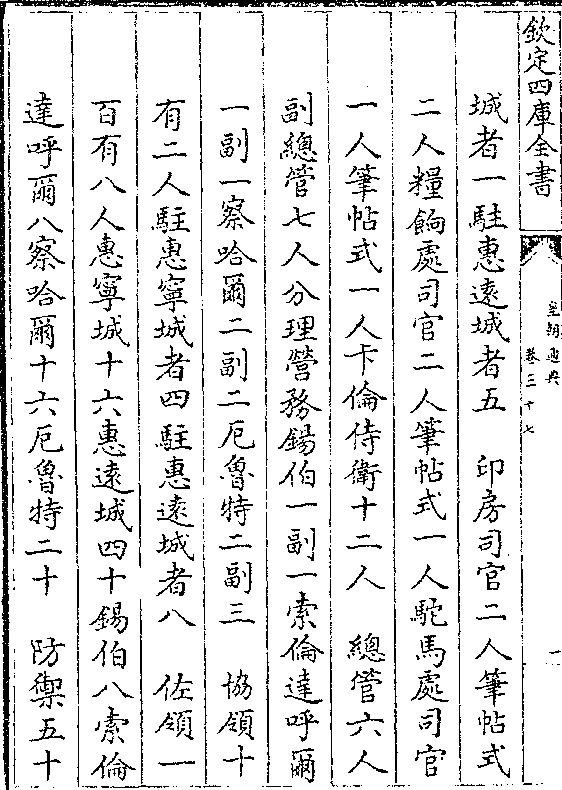 欽定四庫全書
皇朝通典
卷三十七
一
城者一駐惠遠城者五　印房司官二人筆帖式
二人糧餉處司官二人筆帖式一人駝馬處司官
一人筆帖式一人卡倫侍衛十二人　總管六人
副總管七人分理營務錫伯一副一索倫達呼爾
一副一察哈爾二副二厄魯特二副三　協領十
有二人駐惠寧城者四駐惠遠城者八　佐領一
百有八人惠寧城十六惠遠城四十錫伯八索倫
達呼爾八察哈爾十六厄魯特二十　防禦五十